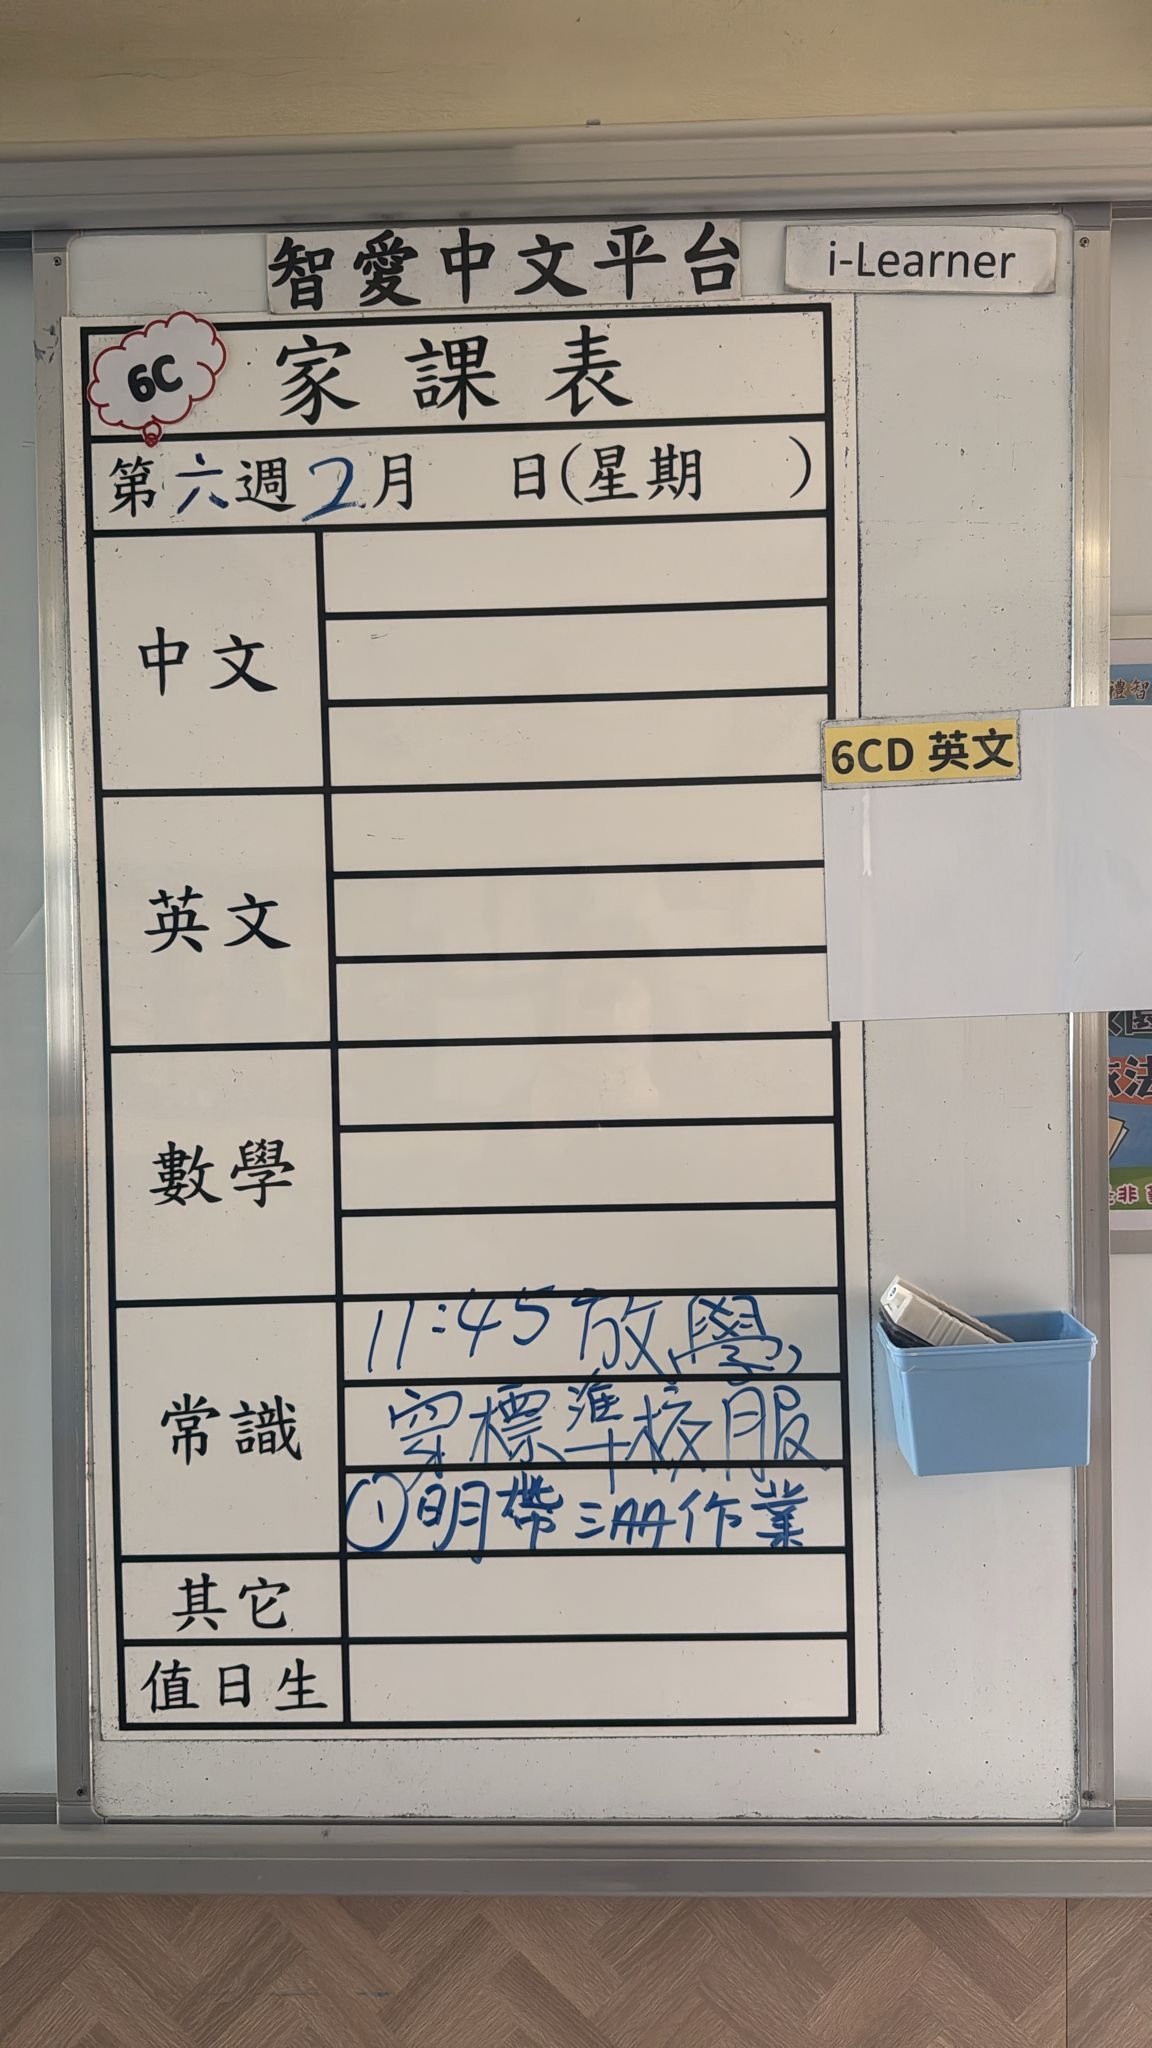 智愛中文平台 i-Learner
6C 家課表
第六週2月 日(星期 )
中文
6CD 英文
英文
數學
常識
11:45放學
穿標準校服
①明帶三冊作業
其它
值日生
禮智
依法
非